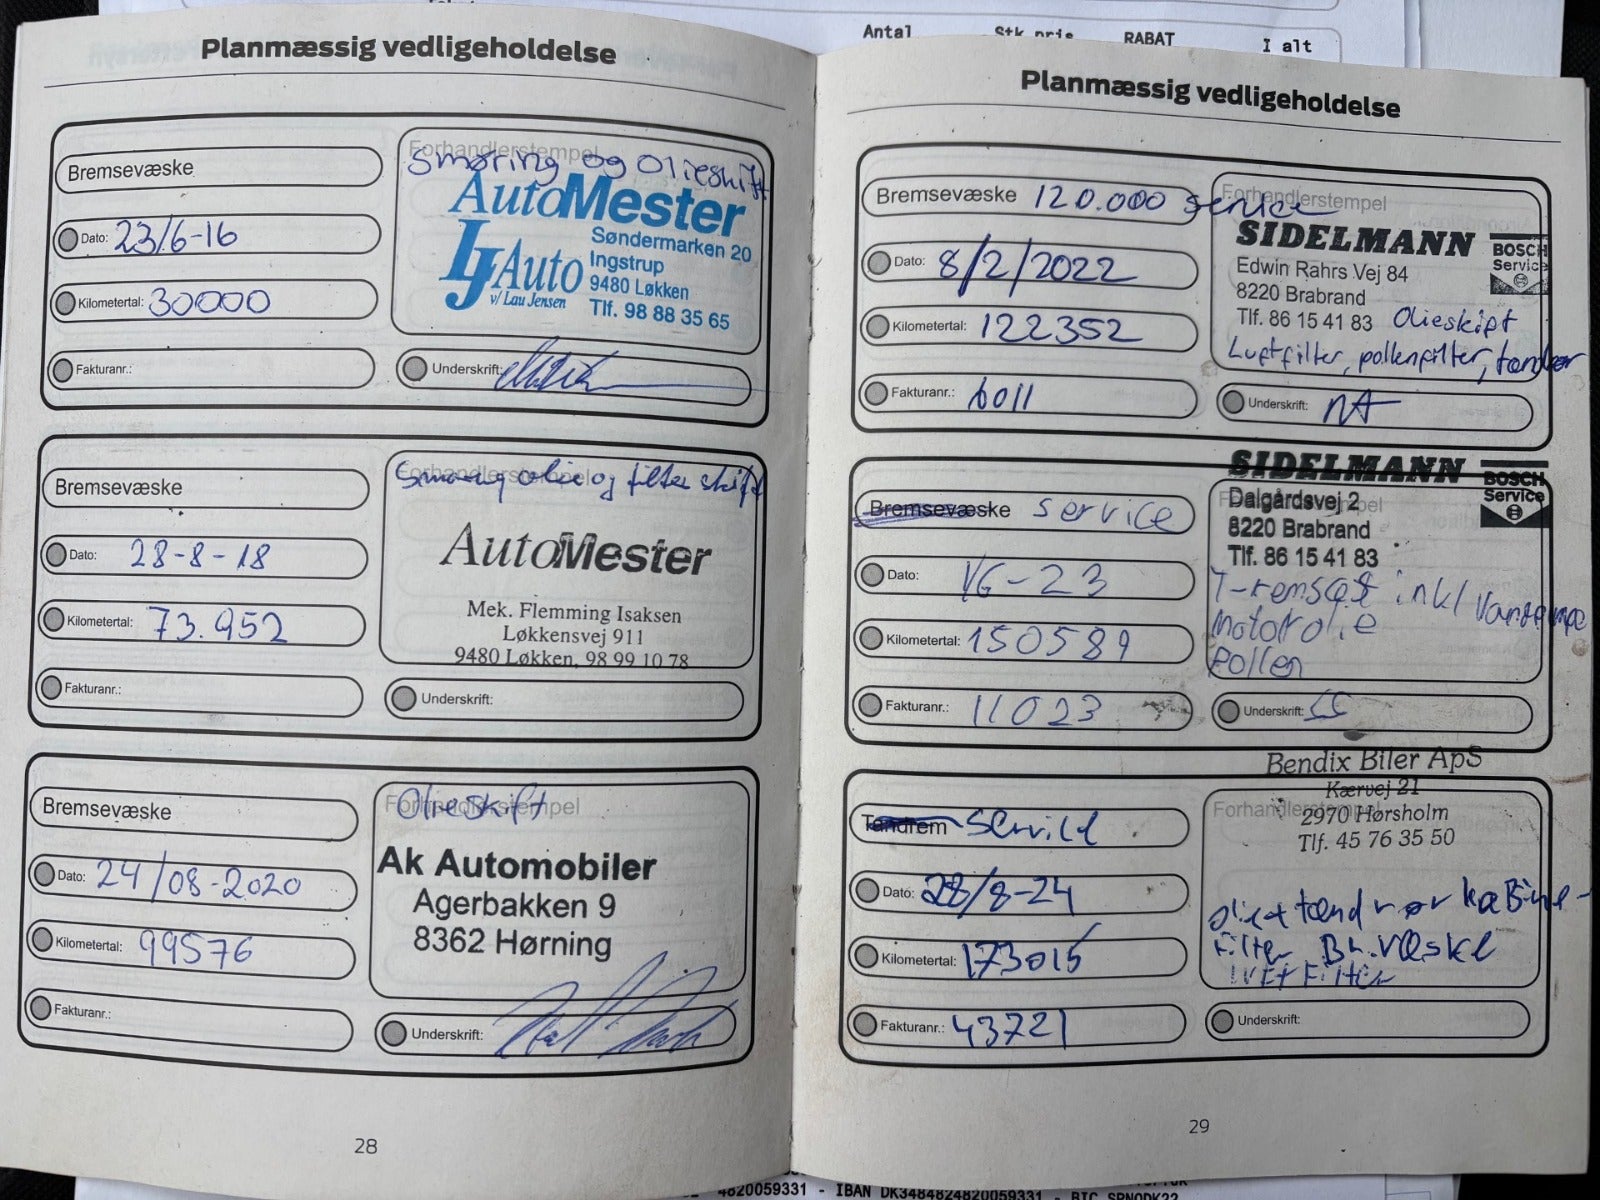 Antal Stk pris RABAT I alt
Planmæssig vedligeholdelse
Bremsevæske
Dato: 23/6-16
Kilometertal: 30000
Fakturanr.:
Forhandlerstempel
Smøring og Olieskift
AutoMester
Søndermarken 20
LJ Auto Ingstrup
9480 Løkken
v/ Lau Jensen Tlf. 98 88 35 65
Underskrift:
Bremsevæske
Dato: 28-8-18
Kilometertal: 73.952
Fakturanr.:
Forhandlerstempel
Smøring olie og filter skift
AutoMester
Mek. Flemming Isaksen
Løkkensvej 911
9480 Løkken, 98 99 10 78
Underskrift:
Bremsevæske
Dato: 24/08-2020
Kilometertal: 99576
Fakturanr.:
Forhandlerstempel
Olieskift
Ak Automobiler
Agerbakken 9
8362 Hørning
Underskrift:
28
Planmæssig vedligeholdelse
Bremsevæske 120.000 service
Dato: 8/2/2022
Kilometertal: 122352
Fakturanr.: 6011
Forhandlerstempel
SIDELMANN BOSCH
Service
Edwin Rahrs Vej 84
8220 Brabrand
Tlf. 86 15 41 83 Olieskift
Luftfilter, pollenfilter, tændrør
Underskrift: NA
Bremsevæske service
Dato: 1/6-23
Kilometertal: 150589
Fakturanr.: 11023
SIDELMANN BOSCH
Service
Dalgårdsvej 2
8220 Brabrand
Tlf. 86 15 41 83
T-remsæt inkl Vandpumpe
Motorolie
Pollen
Underskrift:
Tandrem Service
Dato: 28/8-24
Kilometertal: 173015
Fakturanr.: 43721
Bendix Biler ApS
Kærvej 21
Forhandlerstempel
2970 Hørsholm
Tlf. 45 76 35 50
olie+tændrør kaBine-
Filter Br.væske
luft Filter
Underskrift:
29
4820059331 - IBAN DK3484824820059331 - BIC SPNODK22